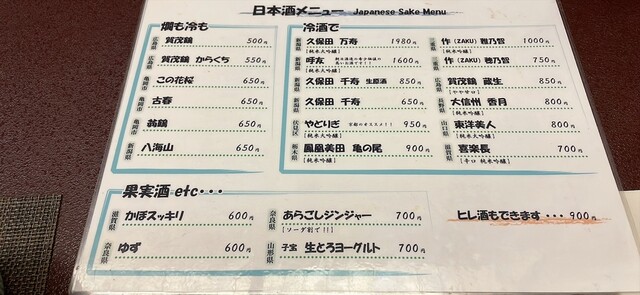 日本酒メニュー Japanese Sake Menu
燗も冷も
広島県 賀茂鶴 500円
広島県 賀茂鶴 からくち 550円
亀岡市 この花桜 650円
亀岡市 古春 650円
亀岡市 翁鶴 650円
新潟県 八海山 650円
冷酒で
新潟県 久保田 万寿 1980円
[純米大吟醸]
新潟県 呼友 1600円
[純米大吟醸]
新潟県 久保田 千寿 生原酒 850円
新潟県 久保田 千寿 650円
伏見区 やどりぎ 京都のオススメ!! 950円
[純米大吟醸]
栃木県 鳳凰美田 亀の尾 900円
[純米吟醸]
三重県 作(ZAKU) 雅乃智 1000円
[純米大吟醸]
三重県 作(ZAKU) 穂乃智 750円
[純米]
広島県 賀茂鶴 蔵生 850円
[やや辛口]
長野県 大信州 香月 800円
[純米大吟醸]
山口県 東洋美人 800円
[純米大吟醸]
滋賀県 喜楽長 700円
[辛口 純米吟醸]
果実酒 etc・・・
滋賀県 かぼスッキリ 600円
奈良県 ゆず 600円
奈良県 あらごしジンジャー 700円
[ソーダ割で!!]
山形県 子宝 生とろヨーグルト 700円
ヒレ酒もできます・・・900円